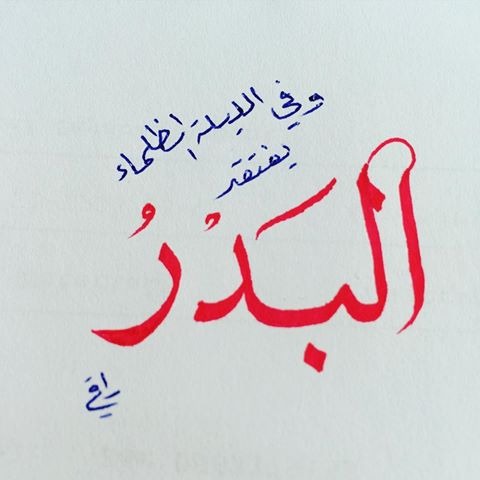 وفي الليلة الظلماء
يفتقد
البَدْرُ